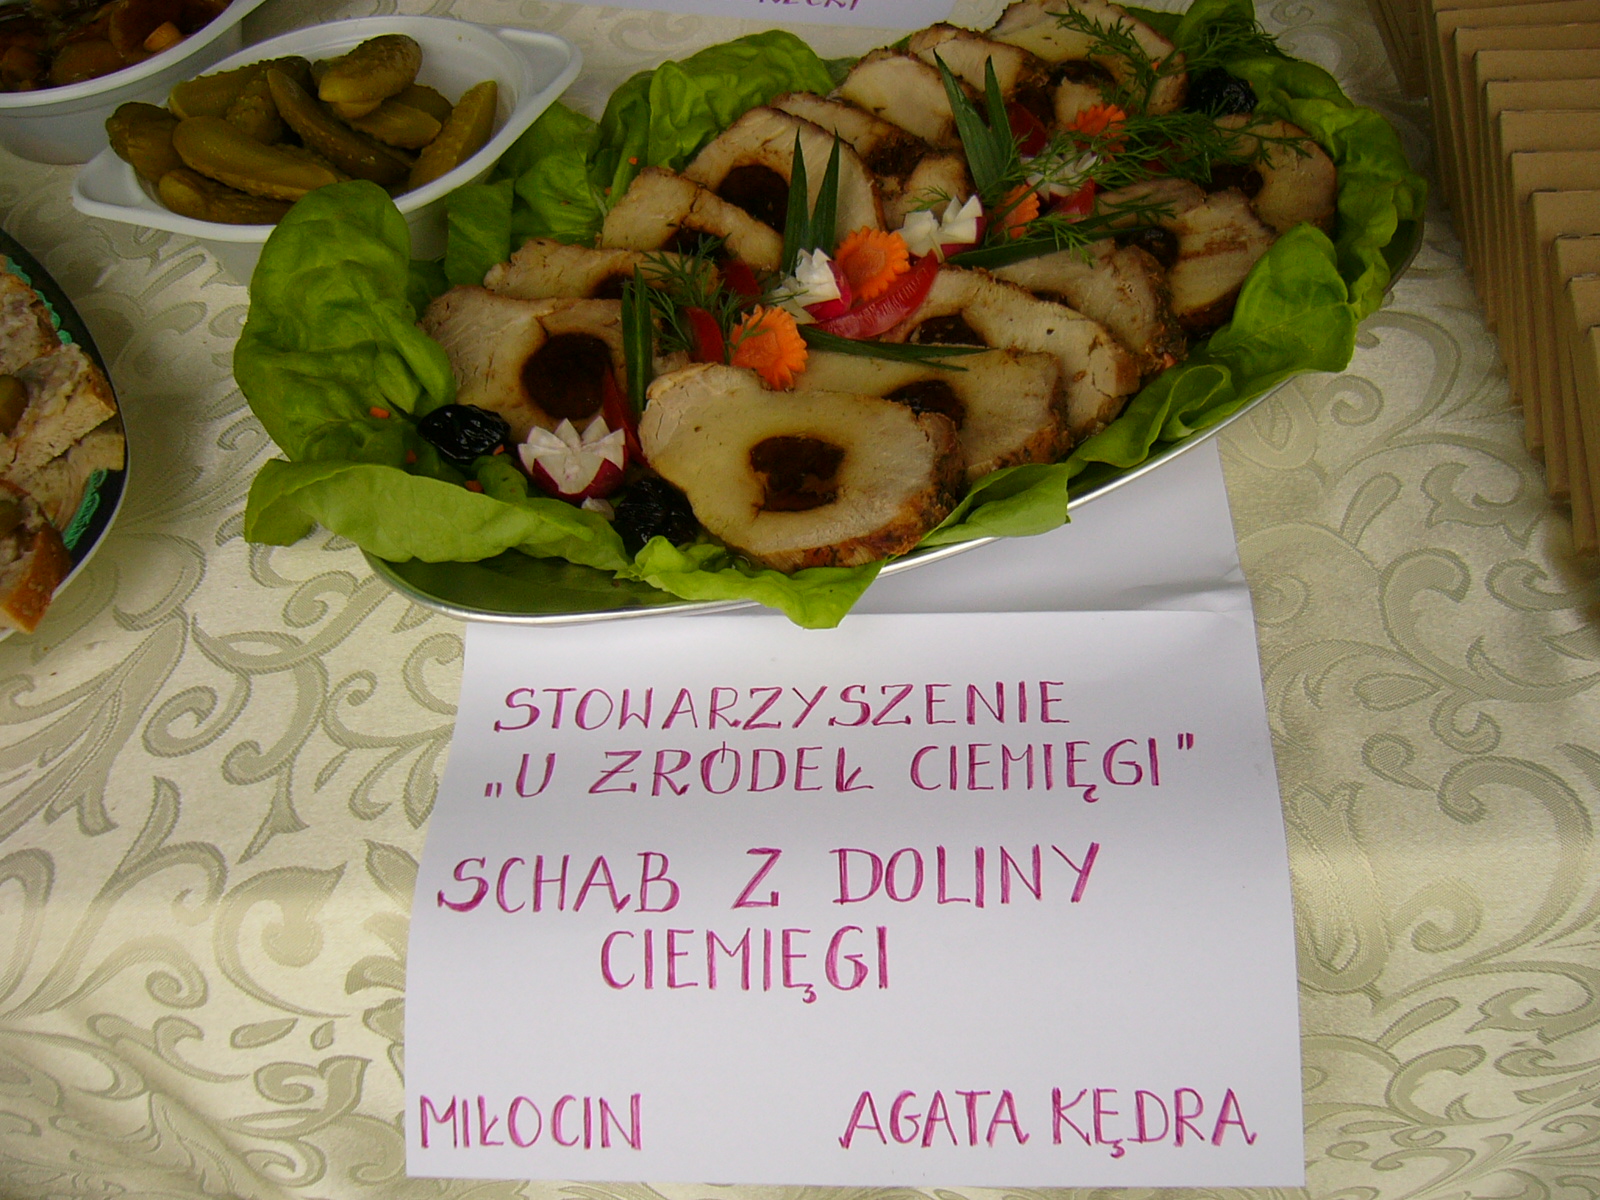 STOWARZYSZENIE
„U ZRÓDEŁ CIEMIĘGI"
SCHAB Z DOLINY
CIEMIĘGI
MIŁOCIN AGATA KĘDRA